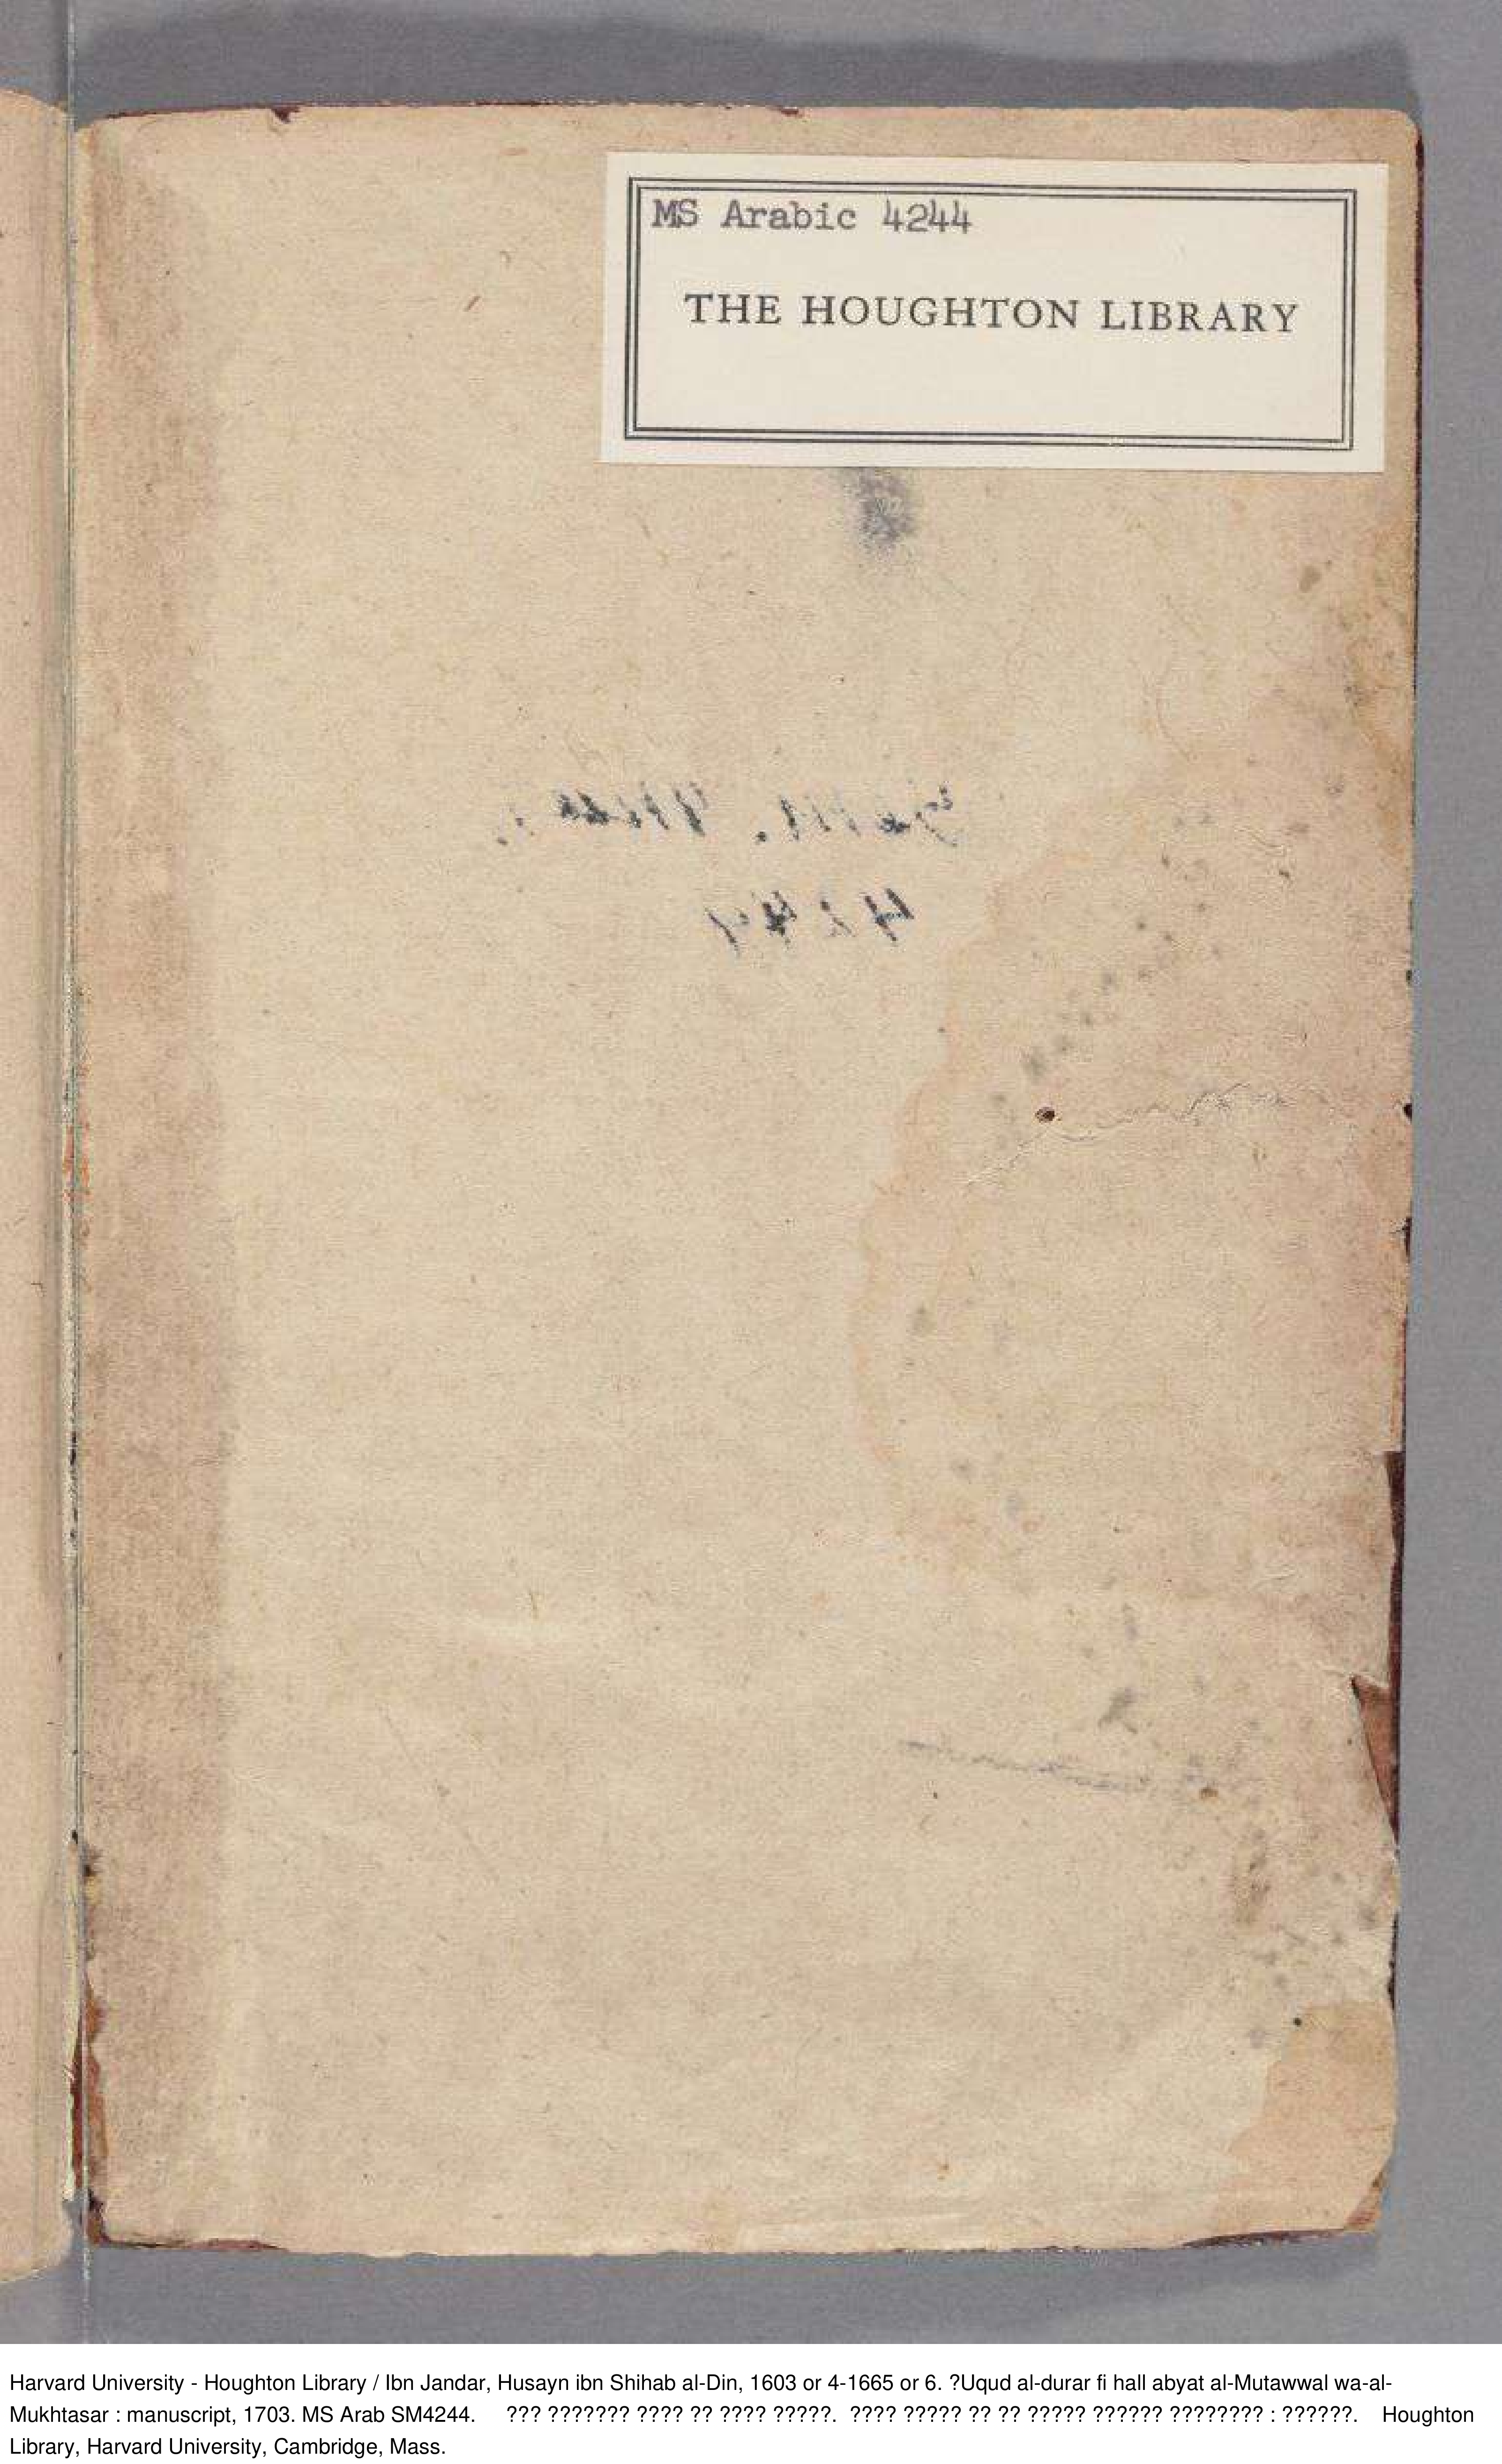 MS Arabic 4244
THE HOUGHTON LIBRARY
4244
Harvard University - Houghton Library / Ibn Jandar, Husayn ibn Shihab al-Din, 1603 or 4-1665 or 6. ?Uqud al-durar fi hall abyat al-Mutawwal wa-al-
Mukhtasar : manuscript, 1703. MS Arab SM4244. ??? ??????? ???? ?? ???? ?????. ???? ????? ?? ?? ????? ?????? ???????? : ??????. Houghton
Library, Harvard University, Cambridge, Mass.